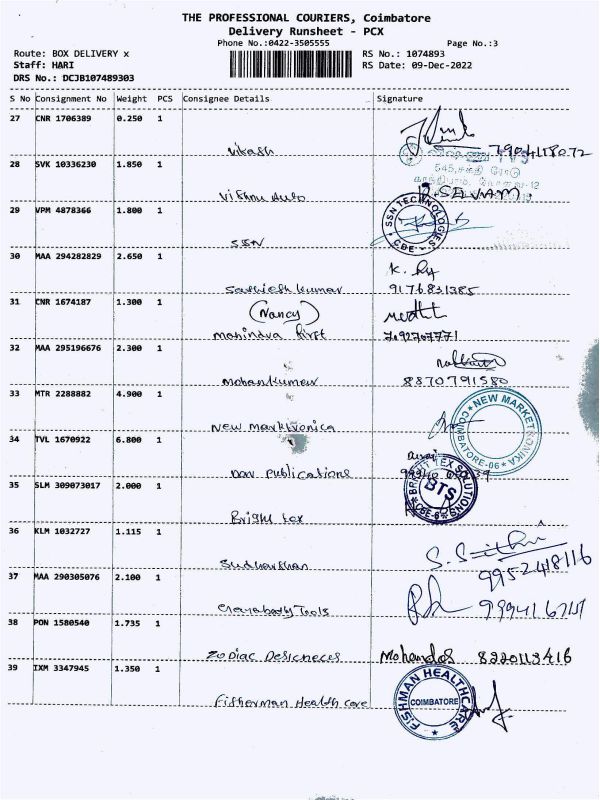 THE PROFESSIONAL COURIERS, Coimbatore
Delivery Runsheet - PCX
Phone No.:0422-3505555 Page No.:3
Route: BOX DELIVERY x RS No.: 1074893
Staff: HARI RS Date: 09-Dec-2022
DRS No.: DCJB107489303
S No Consignment No Weight PCS Consignee Details Signature
27 CNR 1706389 0.250 1
Vikash 7904118072
28 SVK 10336230 1.850 1
545, சக்தி ரோடு
Vishnu Auto R. SELVAM
29 VPM 4878366 1.800 1
SSN TECHNOLOGIES
CBE
SSN
30 MAA 294282829 2.650 1
Kumar 9176831385
31 CNR 1674187 1.300 1
(Nancy)
mahindra first 7092707771
32 MAA 295196676 2.300 1
Mohankumar 8870791580
33 MTR 2288882 4.900 1
NEW MARKTRONIKA
COIMBATORE-06
New marktronica
34 TVL 1670922 6.800 1
publications
35 SLM 309073017 2.000 1
BRIGHT TEX SOLUTIONS
BTS
CBE-6
Bright tex
36 KLM 1032727 1.115 1
Sudharshan 9952418116
37 MAA 290305076 2.100 1
Tools
38 PON 1580540 1.735 1
Zodiac Designeces Mohandas 8220113416
39 IXM 3347945 1.350 1
FISHMAN HEALTHCARE
COIMBATORE
Fisherman Health care